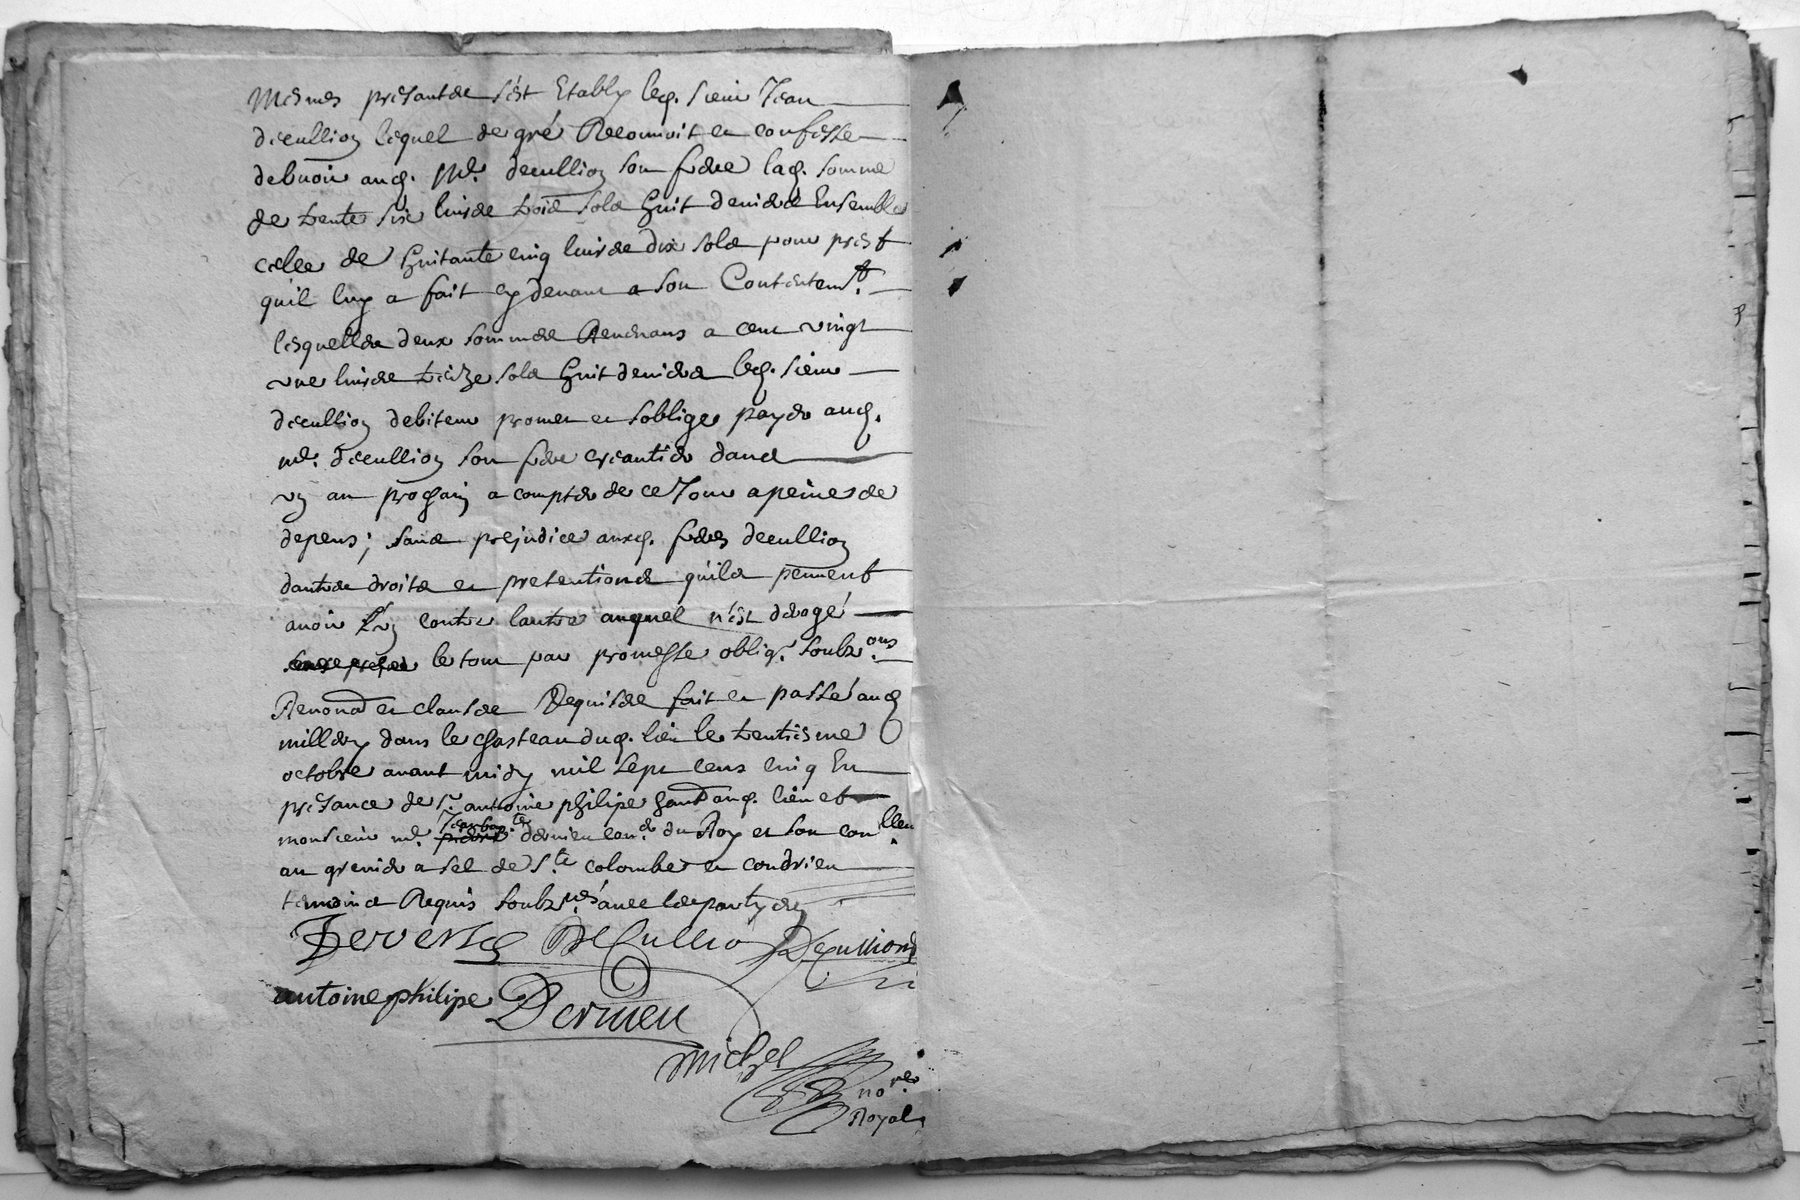 mesmes presantes s'est Estably led. sieur Jean
decullion lequel de gré Reconnoit et confesse
debvoir aud. Mr. decullion son frere lad. somme
de trente six livres trois sols huit deniers Ensemble
celle de huitante cinq livres dix sols pour prest
qu'il luy a fait cy devant a son Contentemt.
lesquelles deux sommes Revenans a cent vingt
une livres treize sols huit deniers led. sieur
decullion debiteur promet et s'oblige payer aud.
mr. decullion son frere creantier dans
un an prochain a compter de ce Jour a peines de
depens; sans prejudice auxd. freres decullion
dautres droits et pretentions qu'ils peuvent
avoir L'un contre lautre auquel n'est derogé
le tout par promesse oblig. soubz.ons
Renond et clauses Requises fait et passé aud
millery dans le chasteau dud. lieu le trentiesme
octobre avant midy mil sept cens cinq En
presance de sr. antoine philipe dud. lieu et
monsieur mr. Jean bapte. dervieu con.er du Roy et son con.lleur
au grenier a sel de Ste. colombe et condrieu
temoins Requis soubznés avec les partyes
DeCullion Decullion
antoine philipe Dervieu
Michel
nore.
Royal